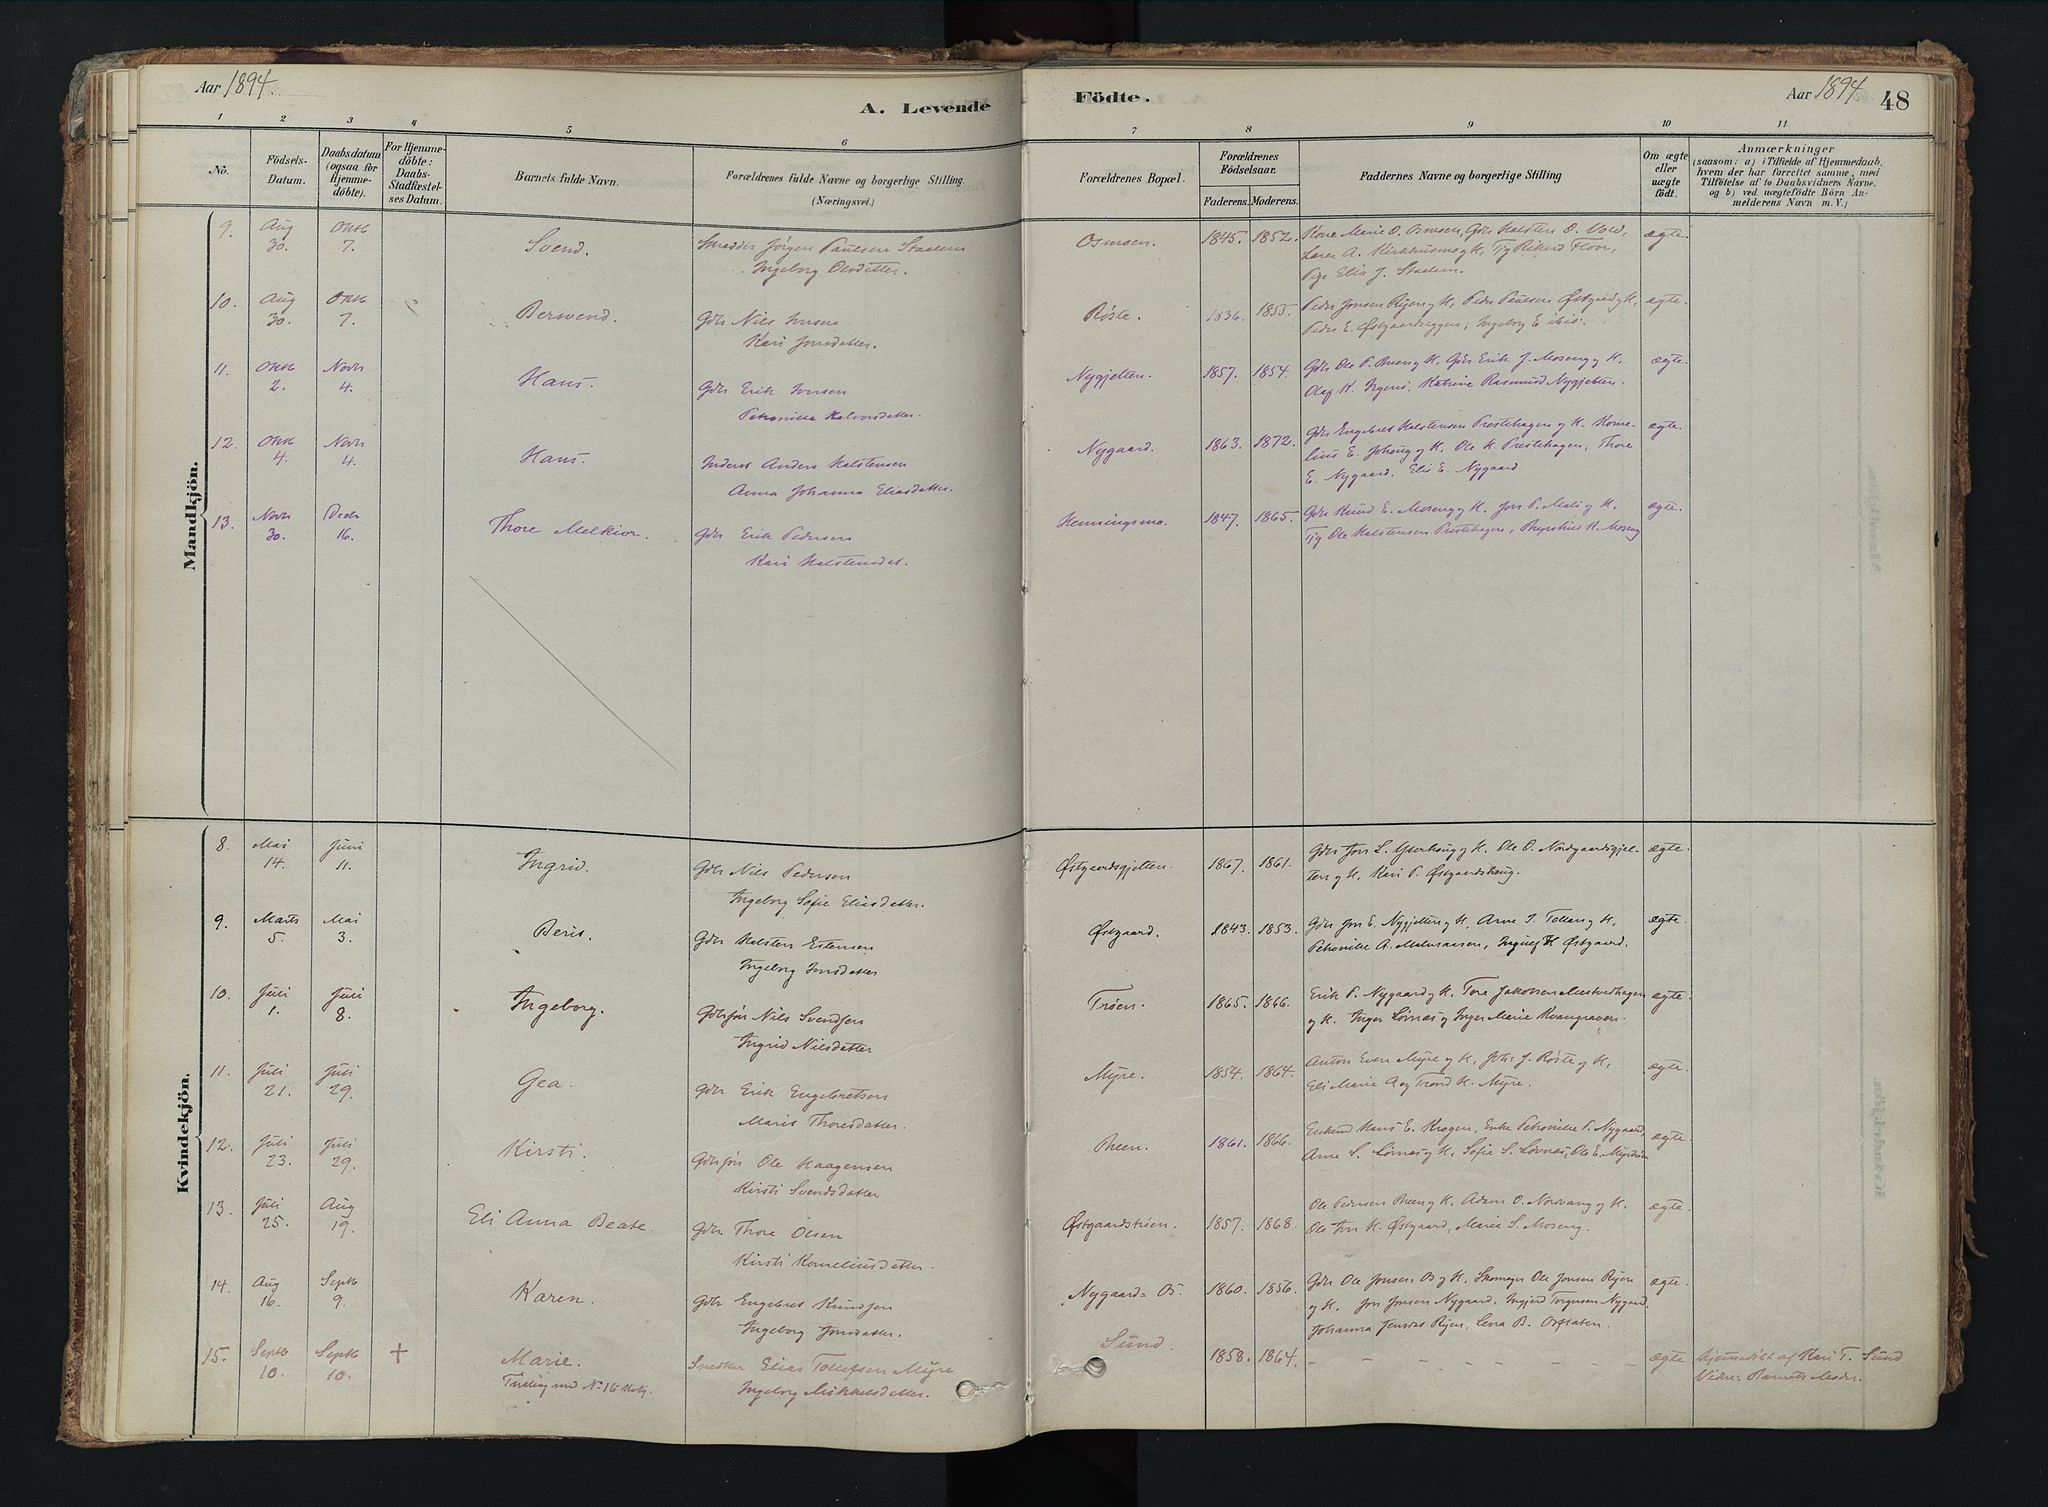 Aar 1894.
A. Levende
Födte.
Aar 1894.
48
1 2 3 4 5 6 7 8 9 10 11
No.
Födsels-Datum.
Daabsdatum (ogsaa for Hjemmedöbte).
For Hjemmedöbte: Daabs-Stadfæstelses Datum.
Barnets fulde Navn.
Forældrenes fulde Navne og borgerlige Stilling. (Næringsvei.)
Forældrenes Bopæl.
Forældrenes Födselsaar.
Faderens. Moderens.
Faddernes Navne og borgerlige Stilling
Om ægte eller uægte födt.
Anmærkninger
(saasom: a) i Tilfælde af Hjemmedaab,
hvem der har forrettet samme, med
Tilföielse af to Daabsvidners Navne,
og b) ved uægtefödte Börn An-
melderens Navn m. V.)
Mandkjön.
9. Aug 30. Oktb 7. Svend. Smedder Jørgen Paulsen Staelem
Ingeborg Olsdatter. Osmoen. 1845. 1852. Kone Marie O. Osmoen, Gdr Halsten O. Vold, ægte.
Lærer A. Kirkhusmo g K, Tj Rikard Floor,
Pige Elia J. Staelem.
10. Aug 30. Oktb 7. Bersvend. Gdr Nils Iversen
Kari Jonsdatter. Røste. 1836. 1855. Peder Jonsen Ryen g K, Peder Paulsen Østgaard g K, ægte.
Peder E. Østgaardseggen, Ingeborg E. ibid.
11. Oktb 2. Novb 4. Hans. Gdr Erik Iversen
Petronille Halvorsdatter. Nygjelten. 1857. 1854. Gdr Ole P. Breen g K, Gdr Erik J. Moseng g K, ægte.
Olaf K. Nygaard, Katrine Rasmusd Nygjelten.
12. Oktb 4. Novb 4. Hans. Inderst Anders Halstensen
Anna Johanna Eliasdatter. Nygaard. 1863. 1872. Gdr Engebret Halstensen Prestehagen g K, Korne- ægte.
lius E. g K, Ole H. Prestehagen, Thore
E. Nygaard, Elis E. Nygaard.
13. Novb 30. Decb 16. Thore Melkior. Gdr Erik Pedersen
Kari Halstensdat. Henningsmo. 1847. 1865. Gdr Knud E. Moseng g K, Jon P. Moli g K, ægte.
Tj Ole Halstensen Prestehagen, K. Moseng
Kvindekjön.
8. Mai 14. Juni 11. Ingrid. Gdr Nils Pedersen
Ingeborg Sofie Eliasdatter. Østgaardsgjelten. 1867. 1861. Gdr Jon L. Ysterhaug g K, Ole O. Nordgaardsgjel- ægte.
ten g K, Kari P. Østgaardshaug.
9. Marts 5. Mai 3. Beris. Gdr Halsten Estensen
Ingeborg Jonsdatter Østgaard. 1843. 1853. Gdr Jon E. Nygjelten g K, Arne I. Tollan g K, ægte.
Petronille A. Malmsaasen, Ingulf H Østgaard.
10. Juli 1. Juli 8. Ingeborg. Gdbsfør Nils Svendsen
Ingrid Nilsdatter Trøen. 1865. 1866. Erik P. Nygaard g K, Tore Jakobsen Mustvedhagen ægte.
g K, Inger Lørnæs g Inger Marie Kvangraven.
11. Juli 21. Juli 29. Gea. Gdr Erik Engebretsen
Marit Thoresdatter. Myre. 1854. 1864. Anton Even Myre g K, Johs J. Røste g K, ægte.
Eli Marie A og Trond K. Myre.
12. Juli 23. Juli 29. Kirsti. Gdbsfør Ole Haagensen
Kirsti Svendsdatter Breen. 1861. 1866. Enkem Hans E. Krogen, Enke Petronille P. Nygaard, ægte.
Arne S. Lørnæs g K, Sofie S. Lørnæs, Ole E.
13. Juli 25. Aug 19. Eli Anna Beate. Gdr. Thore Olsen
Kirsti Korneliusdatter. Østgaardstrøen. 1857. 1868. Ole Pedersen Breen g K, Adam O. Nordvang g K, ægte.
Ole Jon H. Østgaard, Marie S. Moseng.
14. Aug 16. Septb 9. Karen. Gdr Engebret Knudsen
Ingeborg Jonsdatter. Nygaard Ø. 1860. 1856. Gdr Ole Jonsen Ø g K, Skomager Ole Jonsen Ryen ægte.
g K, Jon Jonsen Nygaard, Ingjerd Torgersen Nygaard,
Johanna Jensdt Ryen, Lena B. Orstaten.
15. Septb 10. Septb 10. + Marie.
Tvilling med No 16 Kvkj. Snedker Elias Tollefsen Myre
Ingeborg Mikkelsdatter. Sund. 1858. 1864. - - - - - - - - ægte Hjemmedøbt af Kari T. Sund
Vidne: Barnets Moder.